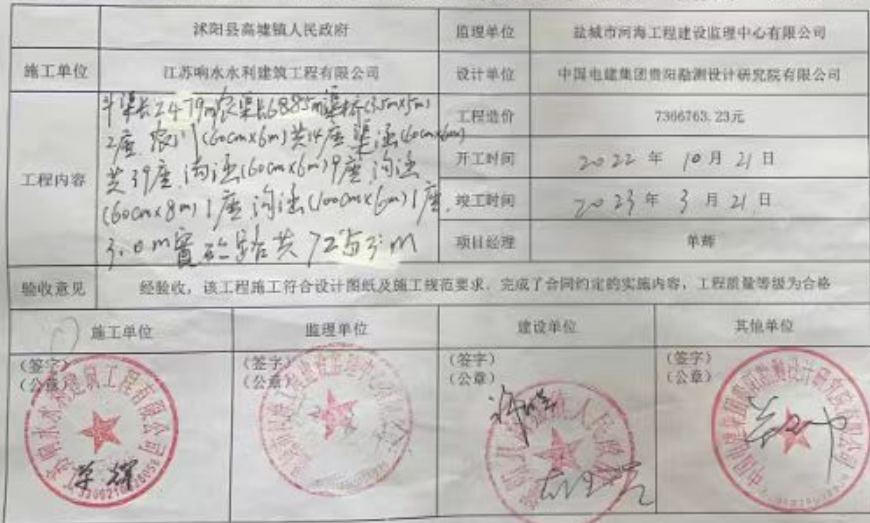 沭阳县高墟镇人民政府 监理单位 盐城市河海工程建设监理中心有限公司
施工单位 江苏响水水利建筑工程有限公司 设计单位 中国电建集团贵阳勘测设计研究院有限公司
工程内容
斗渠长2479m农渠长6885m渠桥(3.5m×5m)
2座 农门(60cm×6m)共14座 渠涵(60cm×6m)
共39座 沟涵(60cm×6m)9座 沟涵
(60cm×8m)1座 沟涵(100cm×6m)1座
3.0m宽砼路共
工程造价 7366763.23元
开工时间 2022年10月21日
竣工时间 2023年3月21日
项目经理 单辉
验收意见 经验收，该工程施工符合设计图纸及施工规范要求，完成了合同约定的实施内容，工程质量等级为合格
施工单位 监理单位 建设单位 其他单位
(签字) (签字) (签字) (签字)
(公章) (公章) (公章) (公章)
单辉